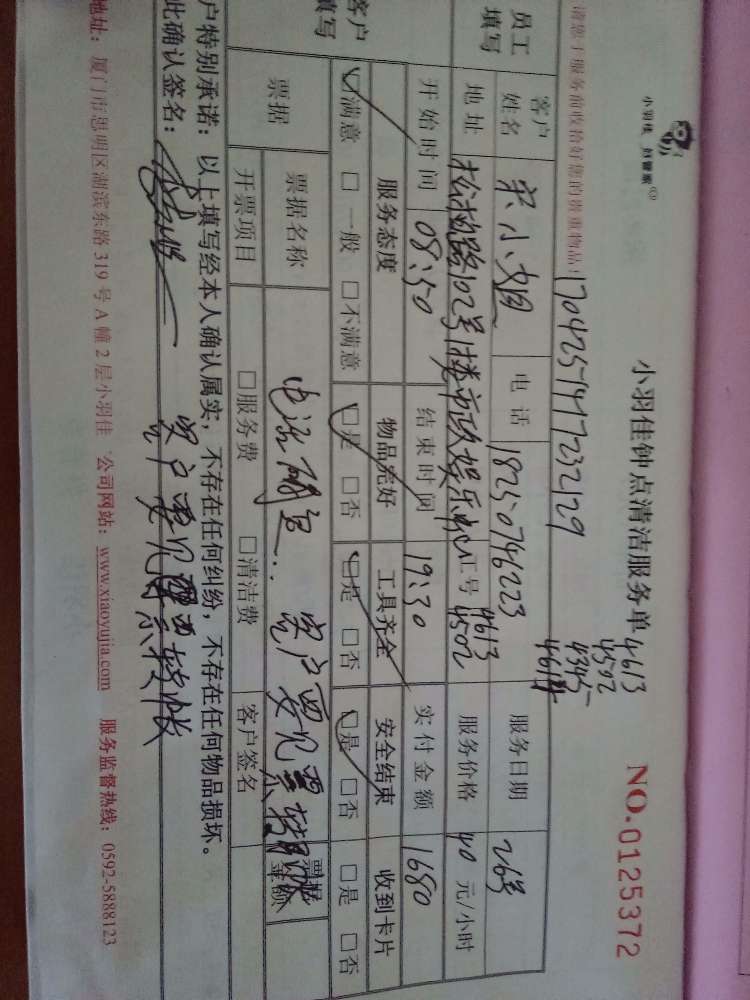 小羽佳 好管家
小羽佳钟点清洁服务单
4613
4502
4345
NO.0125372
请您于服务前收拾好您的贵重物品! 17042571417232129
员工填写
客户姓名 宋小姐 电话 18250746223 服务日期 26号
地址 楼 工号 4613 4502 服务价格 40 元/小时
开始时间 08:50 结束时间 19:30 实付金额 1680
客户填写
服务态度 物品完好 工具齐全 安全结束 收到卡片
☑满意 □一般 □不满意 ☑是 □否 ☑是 □否 ☑是 □否 □是 □否
票据 票据名称 客户要见票转账 票据金额
开票项目 □服务费 □清洁费 客户签名
户特别承诺:以上填写经本人确认属实,不存在任何纠纷,不存在任何物品损坏。
此确认签名:
客户要见票转帐
地址:厦门市思明区湖滨东路 319 号 A 幢 2 层小羽佳 公司网站:www.xiaoyujia.com 服务监督热线:0592-5888123